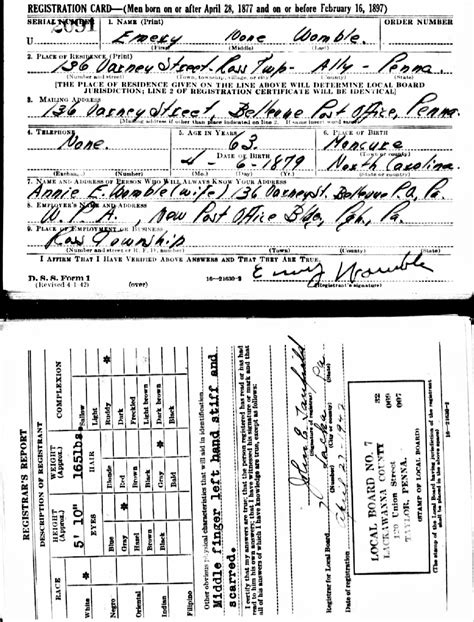 REGISTRATION CARD—(Men born on or after April 28, 1877 and on or before February 16, 1897)
SERIAL NUMBER 1. NAME (Print) ORDER NUMBER
2091 Emery None Womble
(First) (Middle) (Last)
2. PLACE OF RESIDENCE (Print)
136 Varney Street. Ross Twp - Ally - Penna.
(Number and street) (Town, township, village, or city) (County) (State)
[THE PLACE OF RESIDENCE GIVEN ON THE LINE ABOVE WILL DETERMINE LOCAL BOARD
JURISDICTION; LINE 2 OF REGISTRATION CERTIFICATE WILL BE IDENTICAL]
3. MAILING ADDRESS
136 Varney Street, Bellevue Post Office, Penna.
[Mailing address if other than place indicated on line 2. If same insert word same]
4. TELEPHONE 5. AGE IN YEARS 6. PLACE OF BIRTH
None. 63. Moncure
DATE OF BIRTH (Town or county)
4 - 6 - 1879 North Carolina.
(Exchange) (Number) (Mo.) (Day) (Yr.) (State or country)
7. NAME AND ADDRESS OF PERSON WHO WILL ALWAYS KNOW YOUR ADDRESS
Annie E. Womble (wife) 136 Varney St. Bellevue P.O., Pa.
8. EMPLOYER'S NAME AND ADDRESS
W.P.A. New Post Office Bldg, Pgh, Pa.
9. PLACE OF EMPLOYMENT OR BUSINESS
Ross Township
(Number and street or R. F. D. number) (Town) (County) (State)
I AFFIRM THAT I HAVE VERIFIED ABOVE ANSWERS AND THAT THEY ARE TRUE.
D. S. S. Form 1 Emery Womble
(Revised 4-1-42) (over) 16—21630-2 (Registrant's signature)
REGISTRAR'S REPORT
DESCRIPTION OF REGISTRANT
RACE HEIGHT (Approx.) WEIGHT (Approx.) COMPLEXION
5' 10" 165lbs
EYES HAIR
White
Negro
Oriental
Indian
Filipino
Blue
Gray
Hazel
Brown
Black
Blonde
Red
Brown
Black
Gray
Bald
Sallow
Light
Ruddy
Dark
Freckled
Light brown
Dark brown
Black
Other obvious physical characteristics that will aid in identification
Middle finger left hand stiff and
scarred.
I certify that my answers are true; that the person registered has read or has had
read to him his own answers; that I have witnessed his signature or mark and that
all of his answers of which I have knowledge are true, except as follows:
(Signature of registrar)
Registrar for Local Board
(Number) (City or county) (State)
Date of registration April 27 1942
LOCAL BOARD NO. 7 32
LACKAWANNA COUNTY 069
120 Union Street 007
TAYLOR, PENNA.
(STAMP OF LOCAL BOARD)
(The stamp of the Local Board having jurisdiction of the registrant
shall be placed in the above space)
16—21630-2